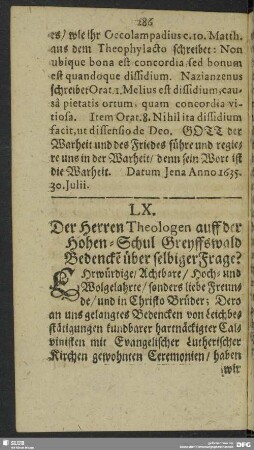 186
es/ wie ihr Oecolampadius c. 10. Matth.
aus dem Theophylacto schreibet: Non
ubique bona est concordia sed bonum
est quandoque dissidium. Nazianzenus
schreibet Orat. 1. Melius est dissidium, cau-
sâ pietatis ortum, quam concordia vi-
tiosa. Item Orat. 8. Nihil ita dissidium
facit, ut dissensio de Deo. GOTT der
Warheit und des Friedes führe und regie-
re uns in der Warheit/ denn sein Wort ist
die Warheit. Datum Jena Anno 1635.
30. Julii.
LX.
Der Herren Theologen auff der
Hohen-Schul Greyffswald
Bedenckẽ über selbiger Frage?
EHrwürdige/ Achtbare/ Hoch- und
Wolgelahrte/ sonders liebe Freun-
de/ und in Christo Brüder; Dero
an uns gelangtes Bedencken von Leichbe-
stätigungen kundbarer hartnäckigter Cal-
vinisten mit Evangelischer Lutherischer
Kirchen gewohnten Ceremonien/ haben
wir
SLUB
DFG